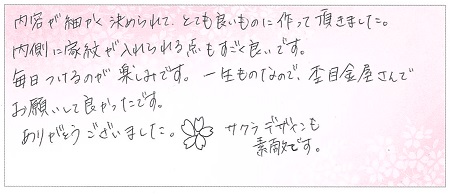 内容が細かく決められて、とても良いものに作って頂きました。
内側に家紋が入れられる点もすごく良いです。
毎日つけるのが楽しみです。一生ものなので、杢目金屋さんで
お願いして良かったです。
ありがとうございました。 サクラデザインも
素敵です。